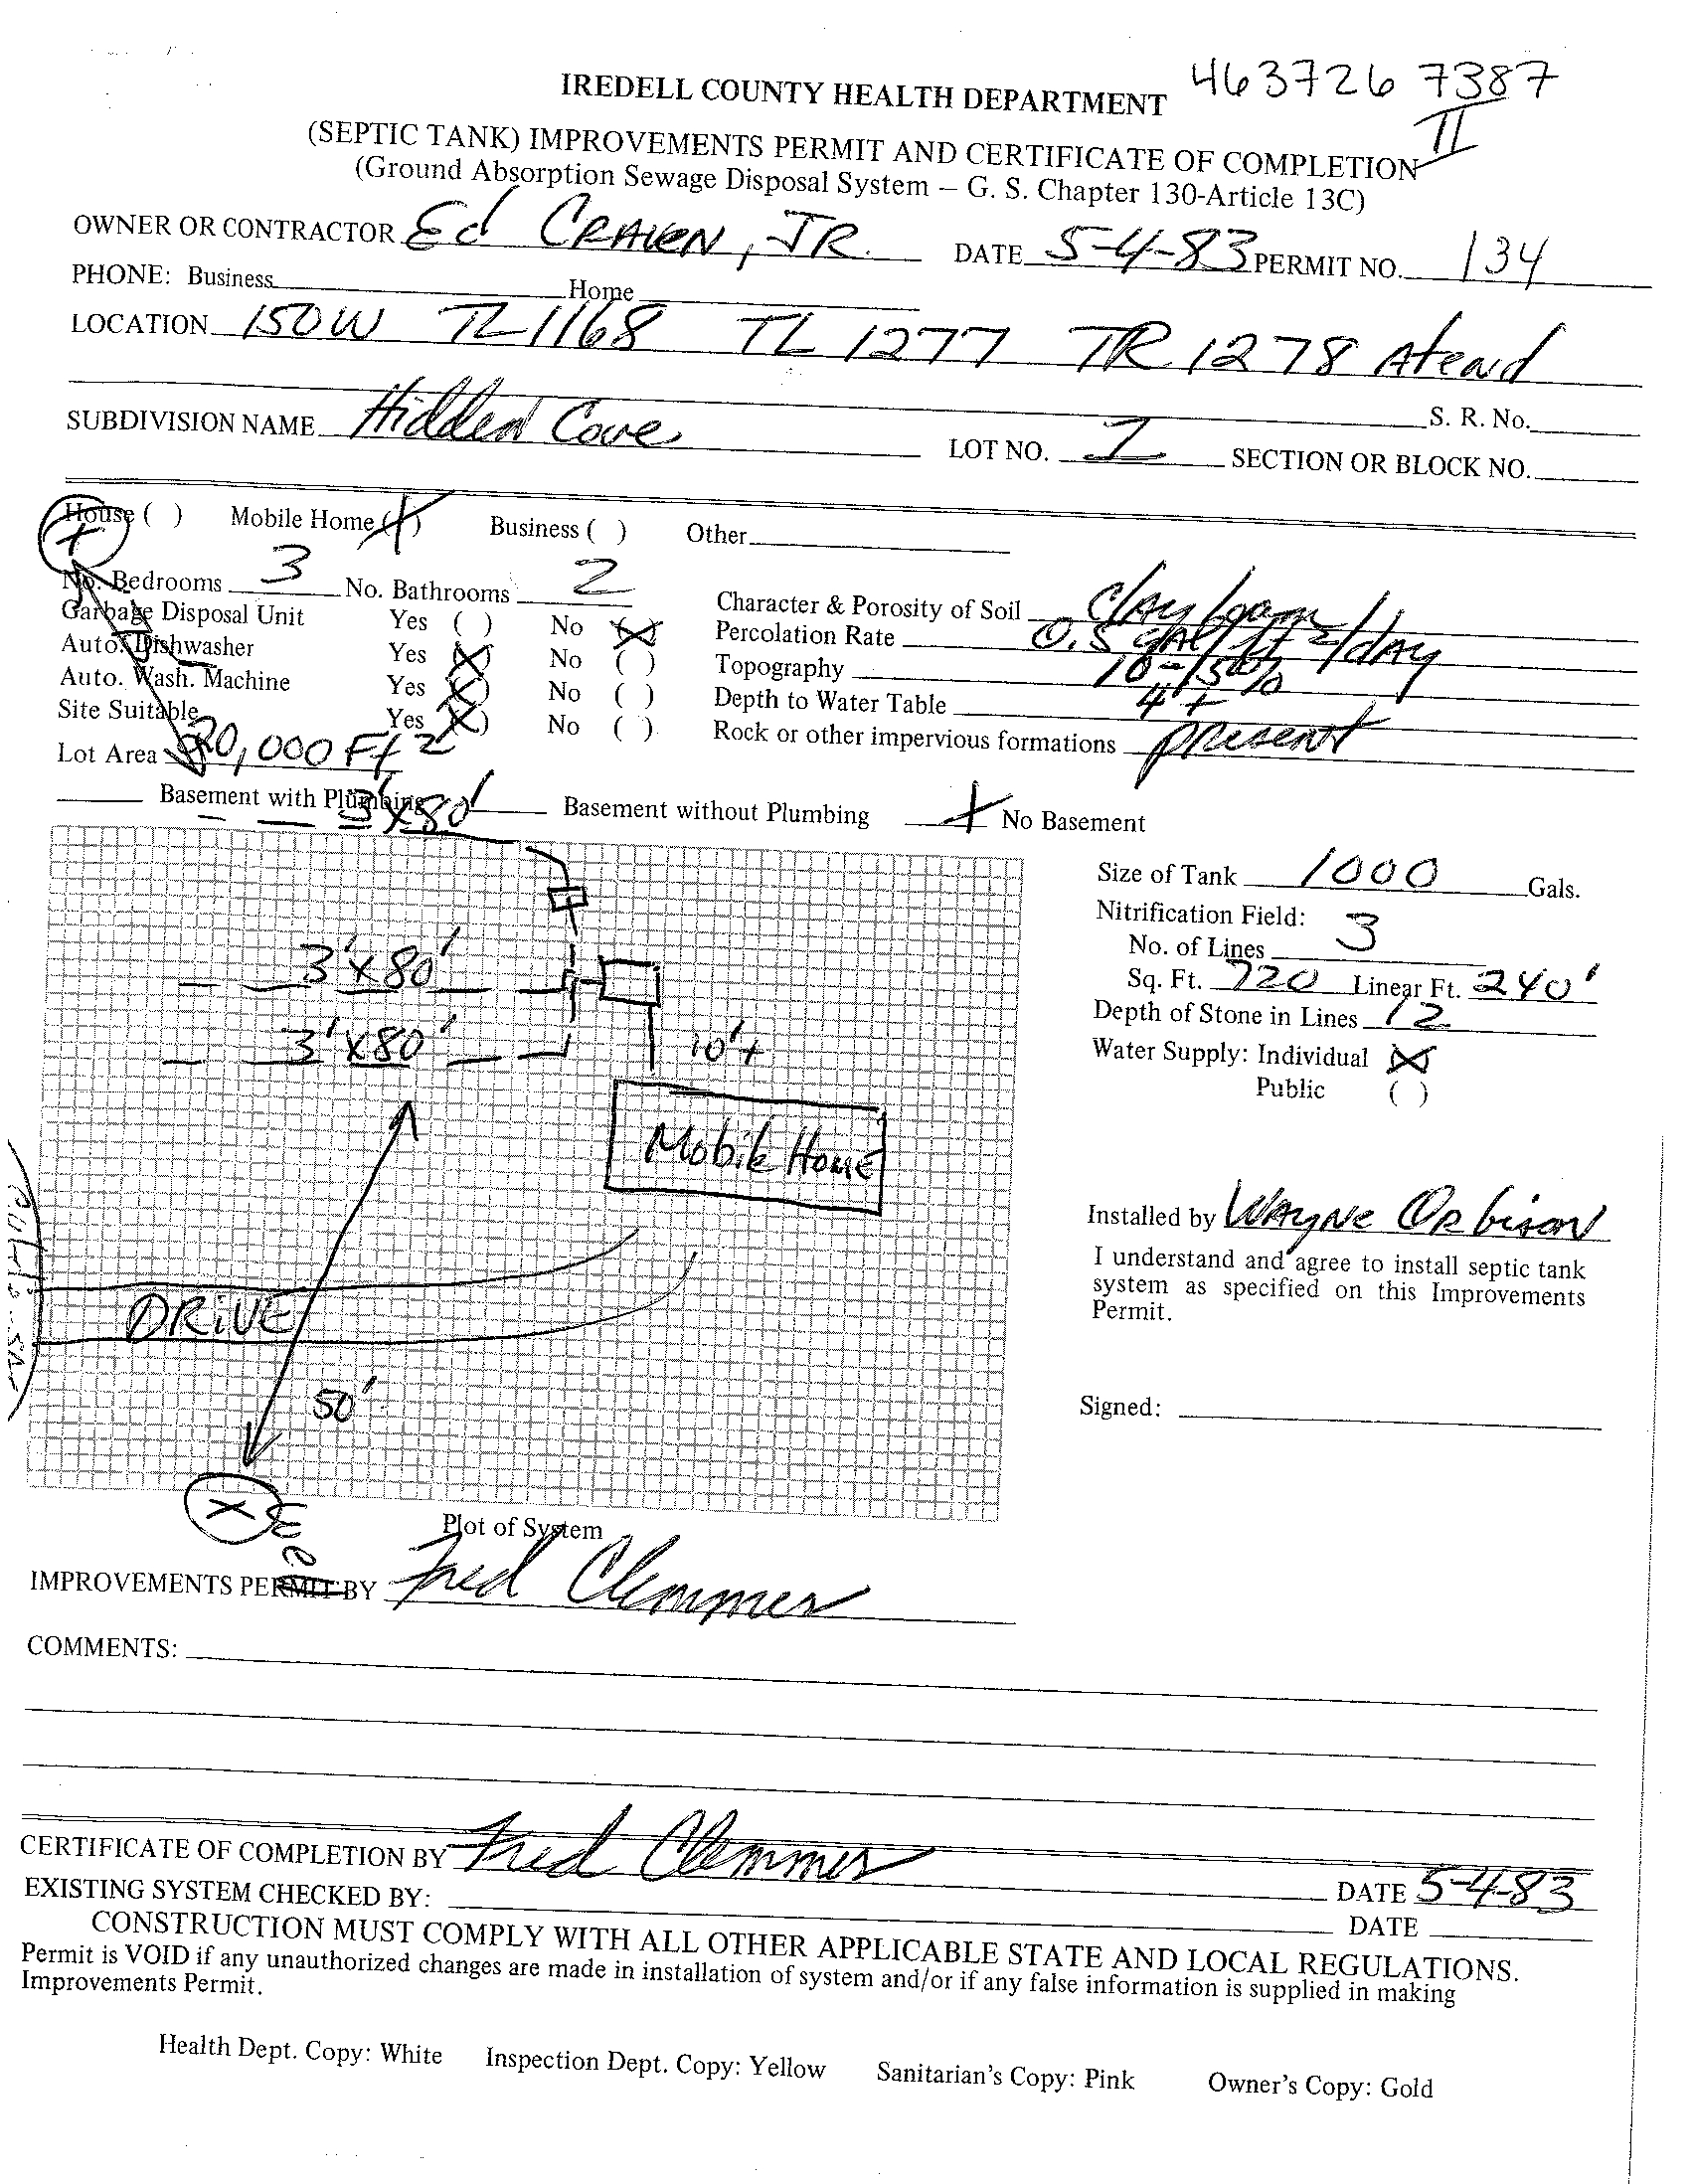 463726 7387
IREDELL COUNTY HEALTH DEPARTMENT
II
(SEPTIC TANK) IMPROVEMENTS PERMIT AND CERTIFICATE OF COMPLETION
(Ground Absorption Sewage Disposal System — G. S. Chapter 130-Article 13C)
OWNER OR CONTRACTOR Ed CRAVEN, JR. DATE 5-4-83 PERMIT NO. 134
PHONE: Business Home
LOCATION 150W TL 1168 TL 1277 TR 1278 At end
S. R. No.
SUBDIVISION NAME Hidden Cove LOT NO. 1 SECTION OR BLOCK NO.
House ( ) Mobile Home (X) Business ( ) Other
No. Bedrooms 3 No. Bathrooms 2
Garbage Disposal Unit Yes ( ) No (X)
Auto. Dishwasher Yes (X) No ( )
Auto. Wash. Machine Yes (X) No ( )
Site Suitable Yes (X) No ( )
Lot Area 20,000 Ft 2
Character & Porosity of Soil Clay loam
Percolation Rate 0.5 gal/ft 2/day
Topography 10-15%
Depth to Water Table 4'+
Rock or other impervious formations present
Basement with Plumbing Basement without Plumbing X No Basement
3'x80'
3'x80'
3'x80'
10'+
Mobile Home
DRIVE
50'
X
Well
Plot of System
Size of Tank 1000 Gals.
Nitrification Field:
No. of Lines 3
Sq. Ft. 720 Linear Ft. 240'
Depth of Stone in Lines 12
Water Supply: Individual (X)
Public ( )
Installed by Wayne Orbison
I understand and agree to install septic tank
system as specified on this Improvements
Permit.
Signed:
IMPROVEMENTS PERMIT BY Fred Clemmer
COMMENTS:
CERTIFICATE OF COMPLETION BY Fred Clemmer DATE 5-4-83
EXISTING SYSTEM CHECKED BY: DATE
CONSTRUCTION MUST COMPLY WITH ALL OTHER APPLICABLE STATE AND LOCAL REGULATIONS.
Permit is VOID if any unauthorized changes are made in installation of system and/or if any false information is supplied in making
Improvements Permit.
Health Dept. Copy: White Inspection Dept. Copy: Yellow Sanitarian's Copy: Pink Owner's Copy: Gold